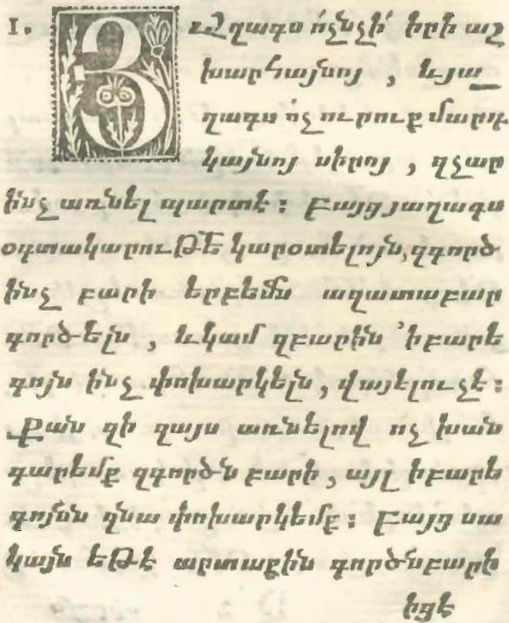 1. Յ Աղագս ո՛չնչի՛ իրի աշ
խարհայնոյ , և յա_
ղագս ո՛չ ուրուք մարդ
կայնոյ սիրոյ , զչար
ինչ առնել պարտ է : Բայց յաղագս
օգտակարութե կարօտելոյն, զգործ
ինչ բարի երբեմն ազատաբար
գործելն , և կամ զբարին ՚ի բարե
գոյն ինչ փոխարկելն , վայելուչ է :
Քան զի զայս առնելով ոչ խան
գարեմք զգործն բարի , այլ ի բարե
գոյնն զնա փոխարկեմք : Բայց սա
կայն եթէ արտաքին գործն բարի
իցէ